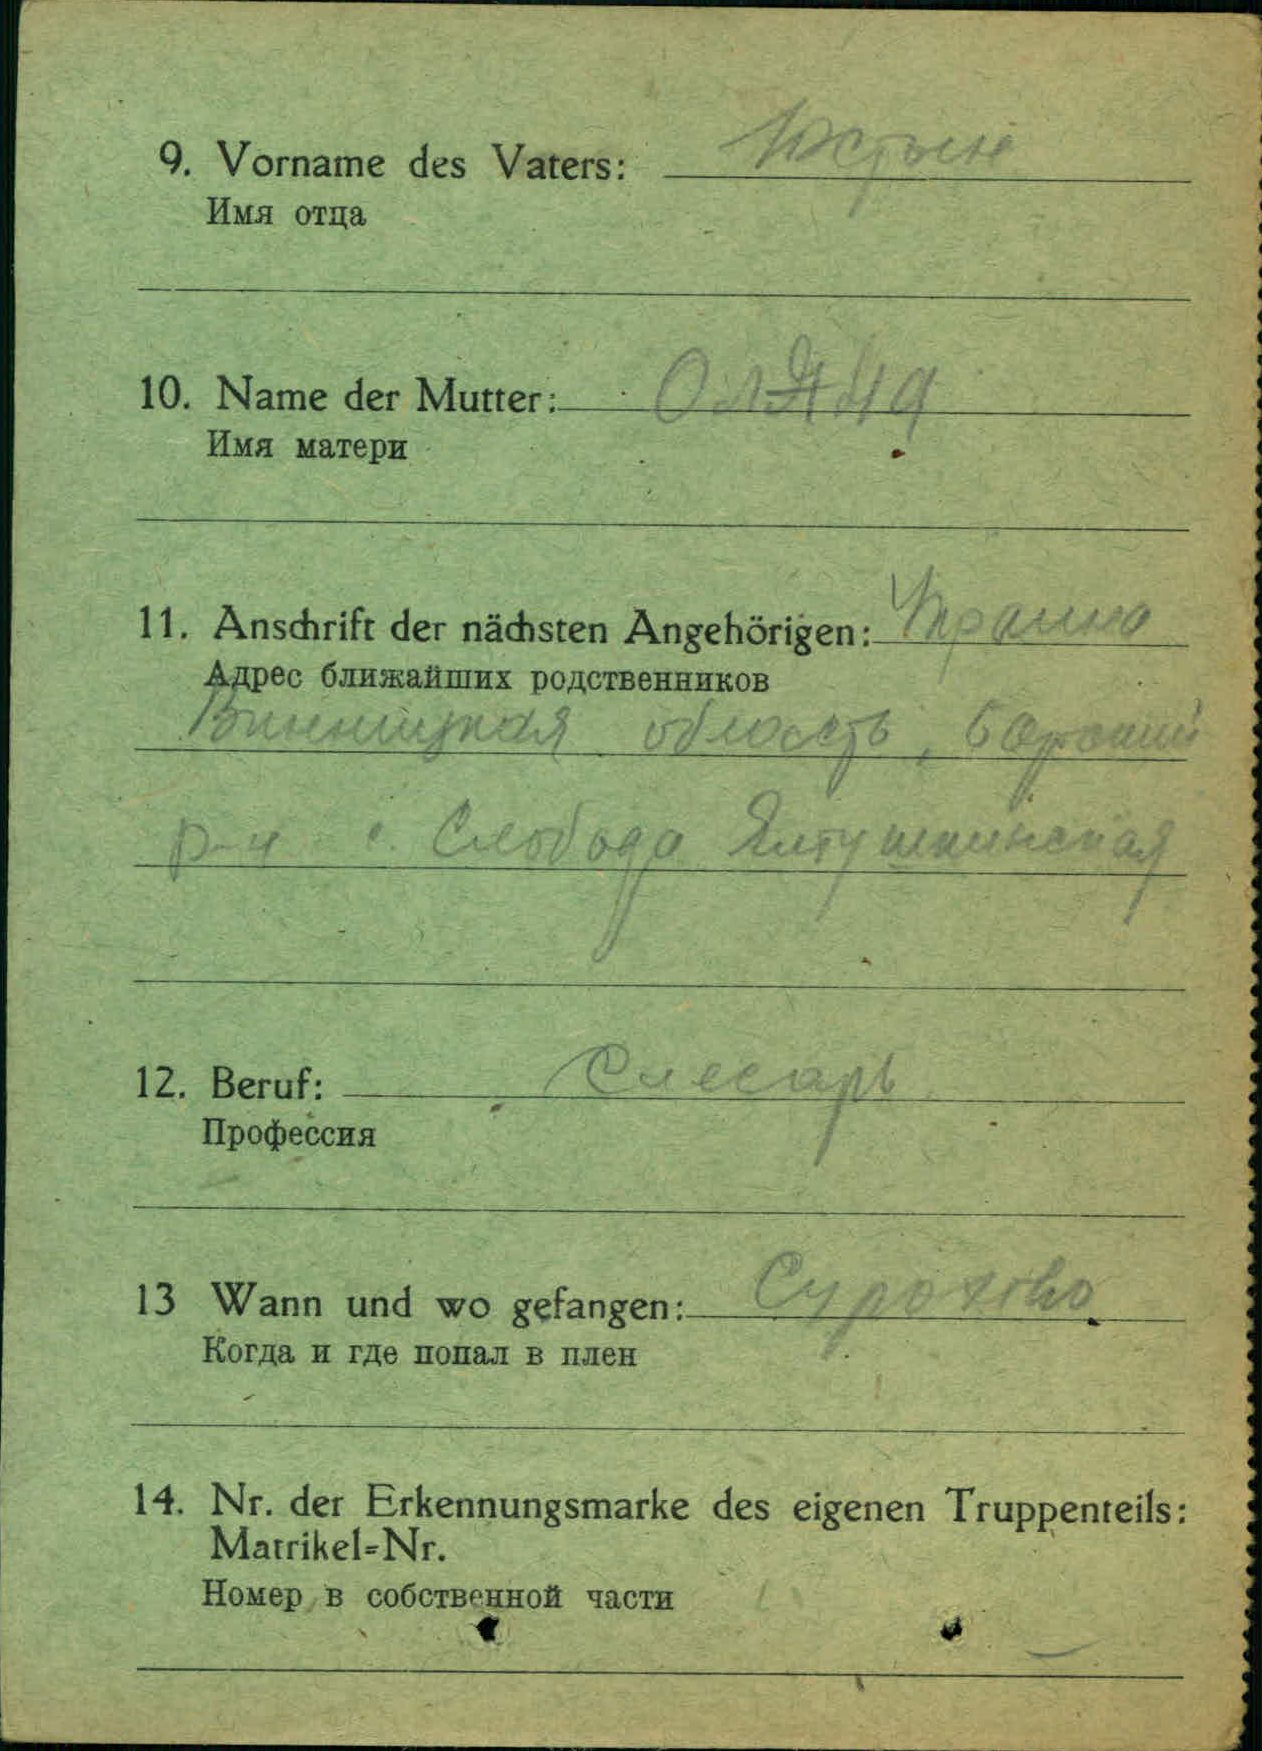 9. Vorname des Vaters: Юстын
Имя отца
10. Name der Mutter:
Имя матери
11. Anschrift der nächsten Angehörigen: Украина
Адрес ближайших родственников
Винницкая область, Барский
р-н с. Слобода Ялтушкинская
12. Beruf: Слесарь
Профессия
13 Wann und wo gefangen:
Когда и где попал в плен
14. Nr. der Erkennungsmarke des eigenen Truppenteils:
Matrikel=Nr.
Номер в собственной части